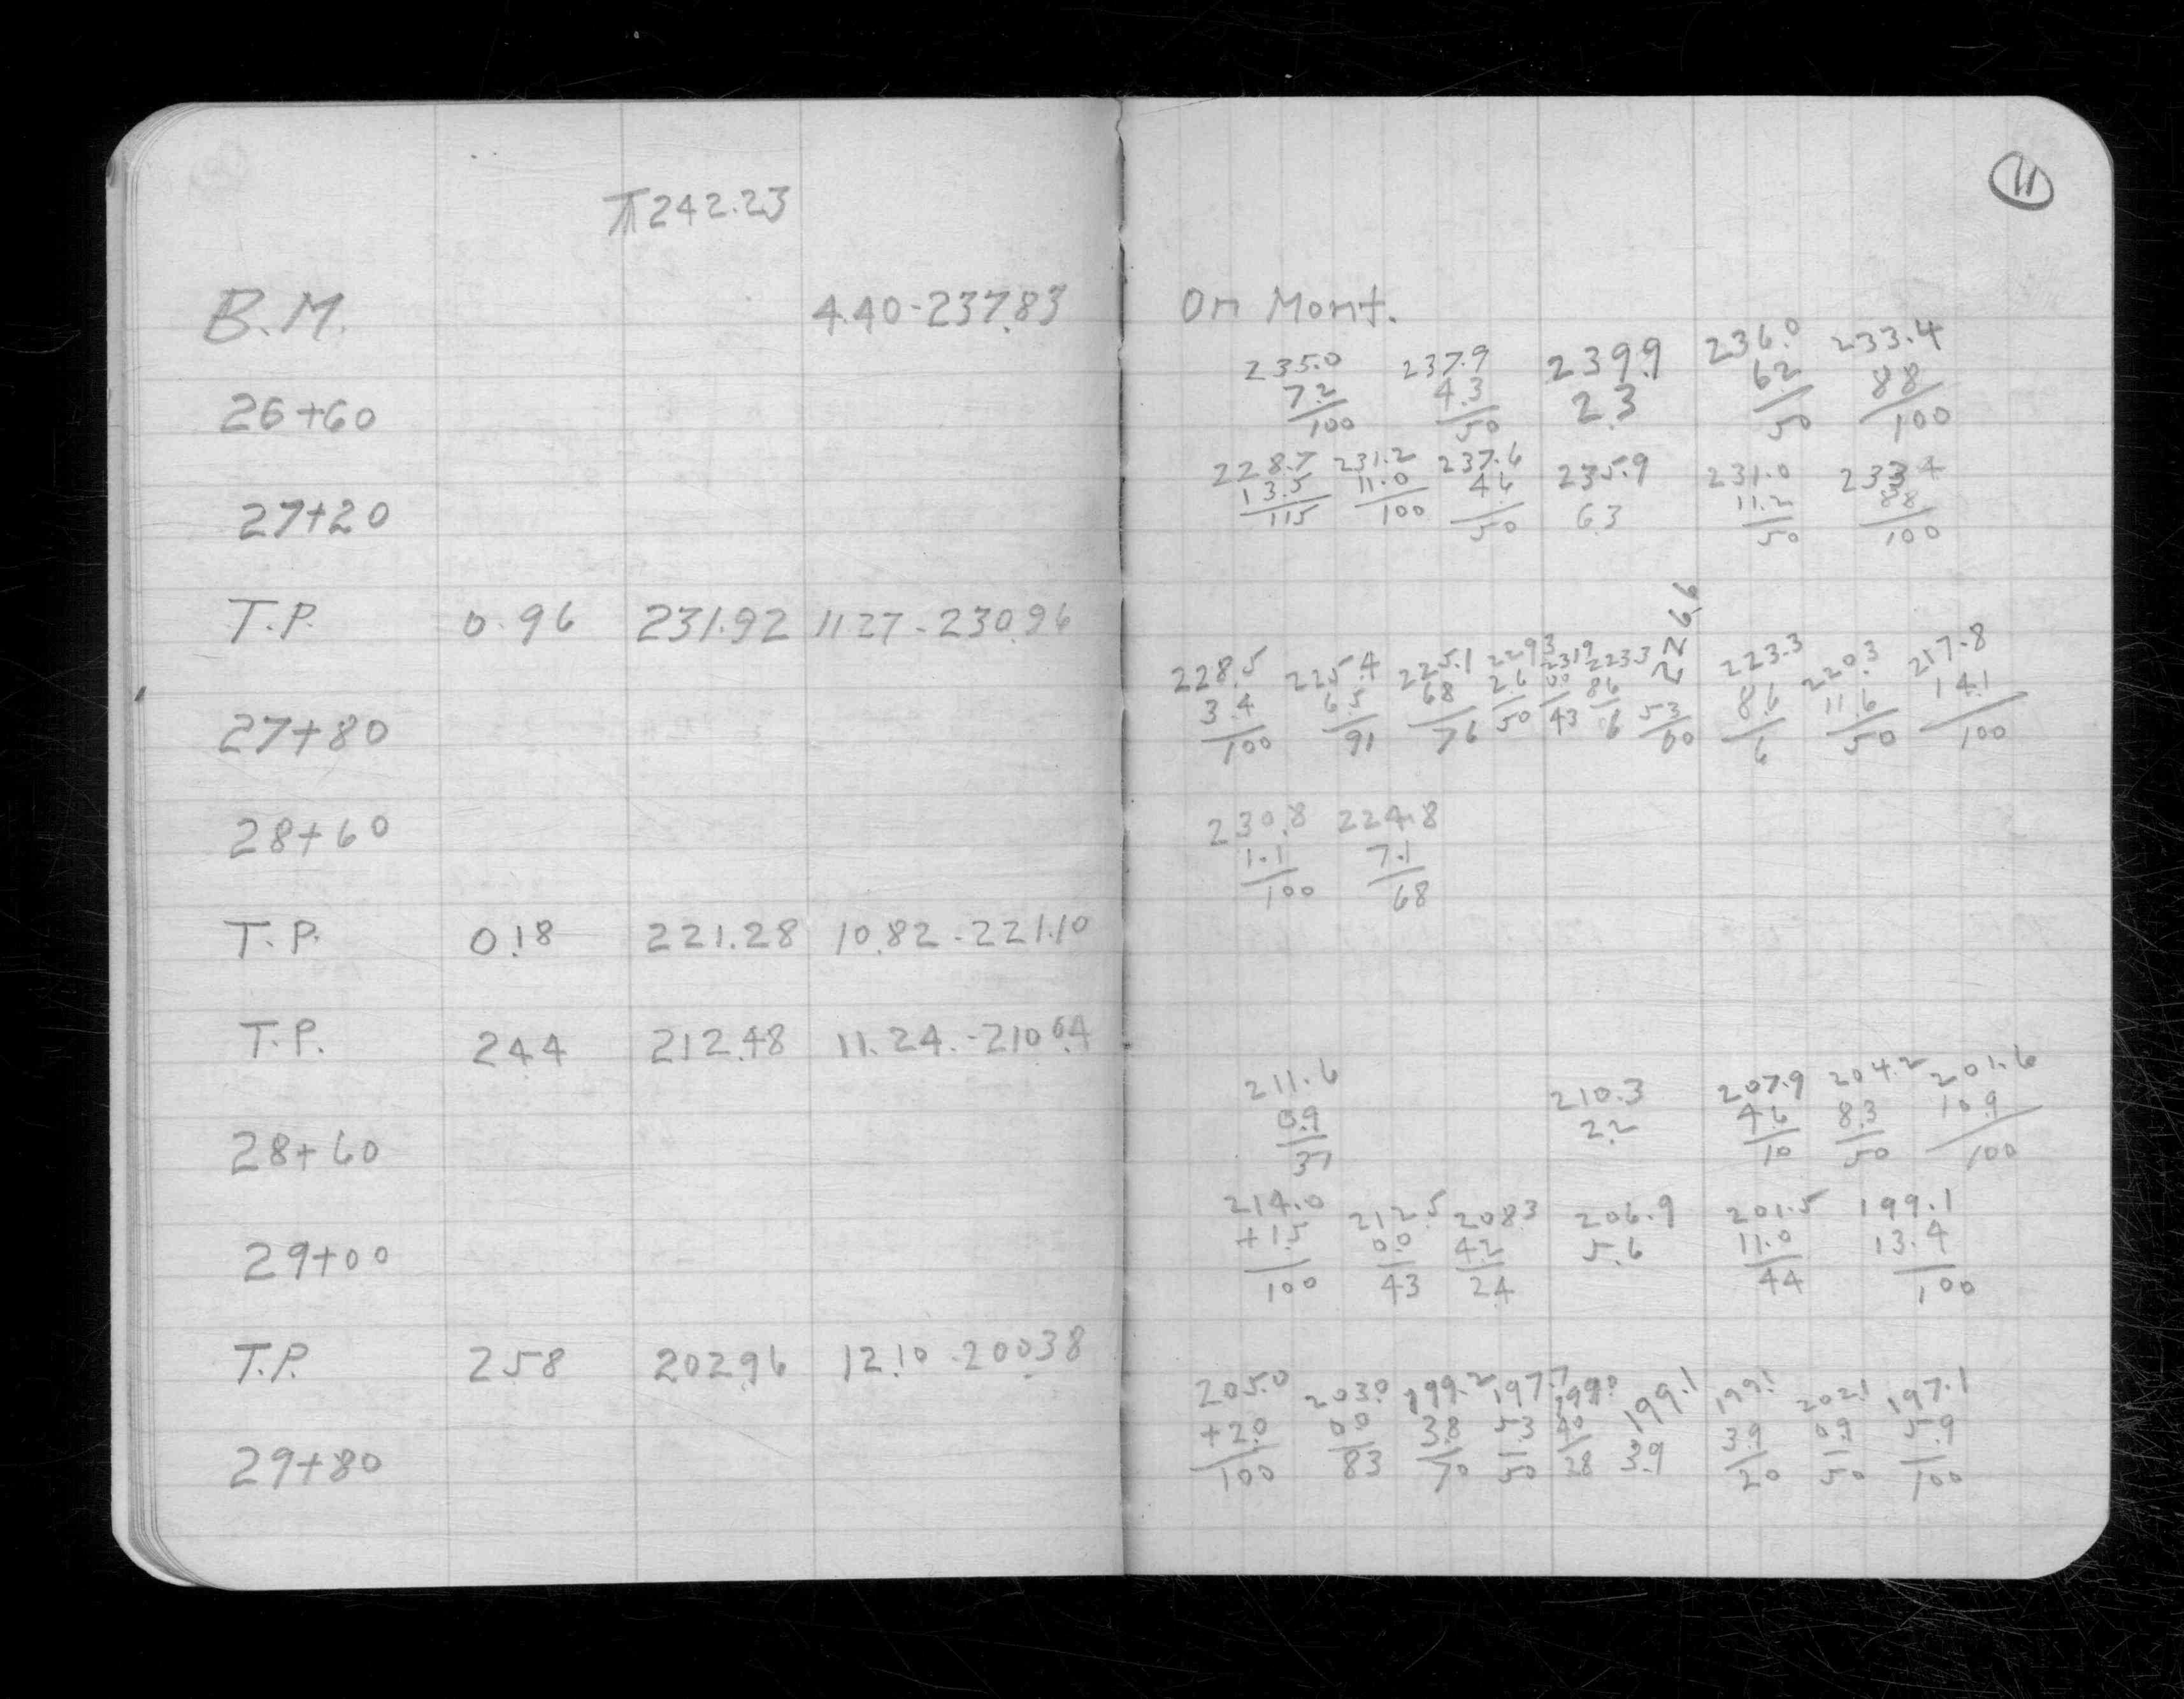 11
⊼ 242.23
B.M. 4.40-237.83 On Mont.
235.0 237.9 239.9 236.0 233.4
26+60 7.2 4.3 2.3 6.2 8.8
100 50 50 100
228.7 231.2 237.6 235.9 231.0 233.4
27+20 13.5 11.0 4.6 6.3 11.2 8.8
115 100 50 50 100
T.P. 0.96 231.92 11.27-230.96
228.5 225.4 225.1 229.3 231.9 223.3 226.6 223.3 220.3 217.8
27+80 3.4 6.5 6.8 2.6 0.0 8.6 5.3 8.6 11.6 14.1
100 91 76 50 43 6 00 6 50 100
230.8 224.8
28+60 1.1 7.1
100 68
T.P. 0.18 221.28 10.82-221.10
T.P. 2.44 212.48 11.24-210.04
211.6 210.3 207.9 204.2 201.6
28+60 0.9 2.2 4.6 8.3 10.9
37 10 50 100
214.0 212.5 208.3 206.9 201.5 199.1
29+00 +1.5 0.0 4.2 5.6 11.0 13.4
100 43 24 44 100
T.P. 2.58 202.96 12.10-200.38
205.0 203.0 199.2 197.7 199.0 199.1 199.1 202.1 197.1
29+80 +2.0 0.0 3.8 5.3 4.0 3.9 3.9 0.9 5.9
100 83 70 50 28 20 50 100